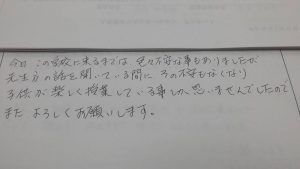 今日 この学校に来るまでは 色々不安な事もありましたが
先生方の話を聞いている間に その不安もなくなり
子供が楽しく授業している事しか、思いませんでしたので
また よろしくお願いします。